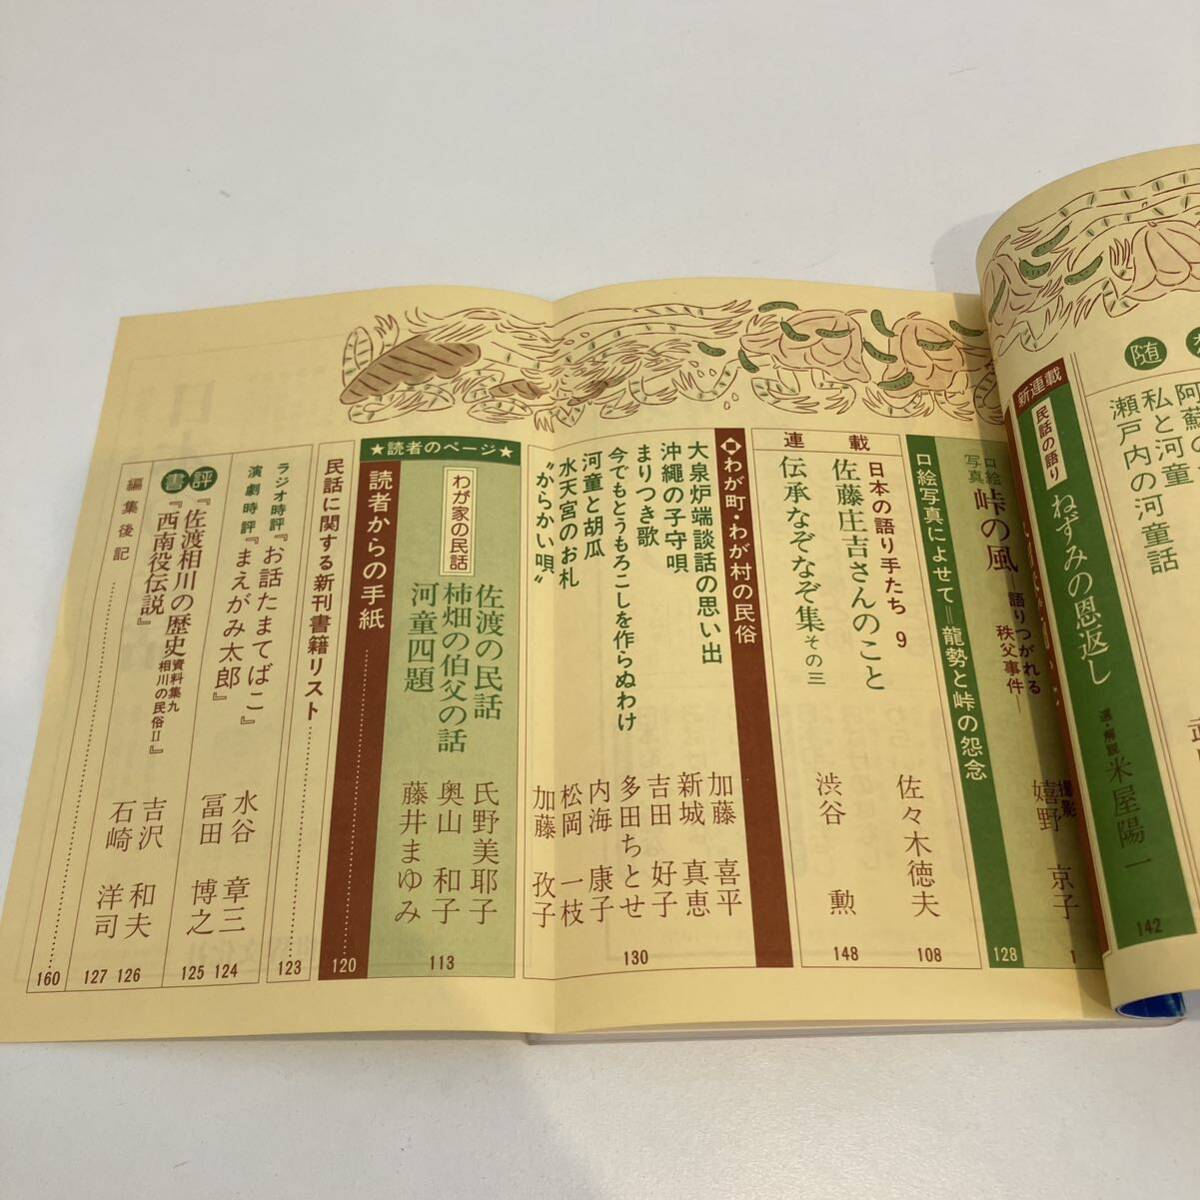 随
私と河童
瀬戸内の河童話
新連載
民話の語り
ねずみの恩返し
選・解説
米屋陽一
142
口絵写真
峠の風
―語りつがれる秩父事件―
撮影
嬉野 京子
1
口絵写真によせて=龍勢と峠の怨念
128
連載
日本の語り手たち 9
佐藤庄吉さんのこと
佐々木徳夫
108
伝承なぞなぞ集 その三
渋谷 勲
148
わが町・わが村の民俗
大泉炉端談話の思い出
加藤 喜平
沖縄の子守唄
新城 真恵
まりつき歌
吉田 好子
今でもとうもろこしを作らぬわけ
多田ちとせ
河童と胡瓜
内海 康子
水天宮のお札
松岡 一枝
“からかい唄”
加藤 孜子
130
★読者のページ★
わが家の民話
佐渡の民話
氏野美耶子
柿畑の伯父の話
奥山 和子
河童四題
藤井まゆみ
113
読者からの手紙
120
民話に関する新刊書籍リスト
123
ラジオ時評『お話たまてばこ』
水谷 章三
124
演劇時評『まえがみ太郎』
冨田 博之
125
書評
『佐渡相川の歴史 資料集九 相川の民俗Ⅱ』
吉沢 和夫
126
『西南役伝説』
石崎 洋司
127
編集後記
160